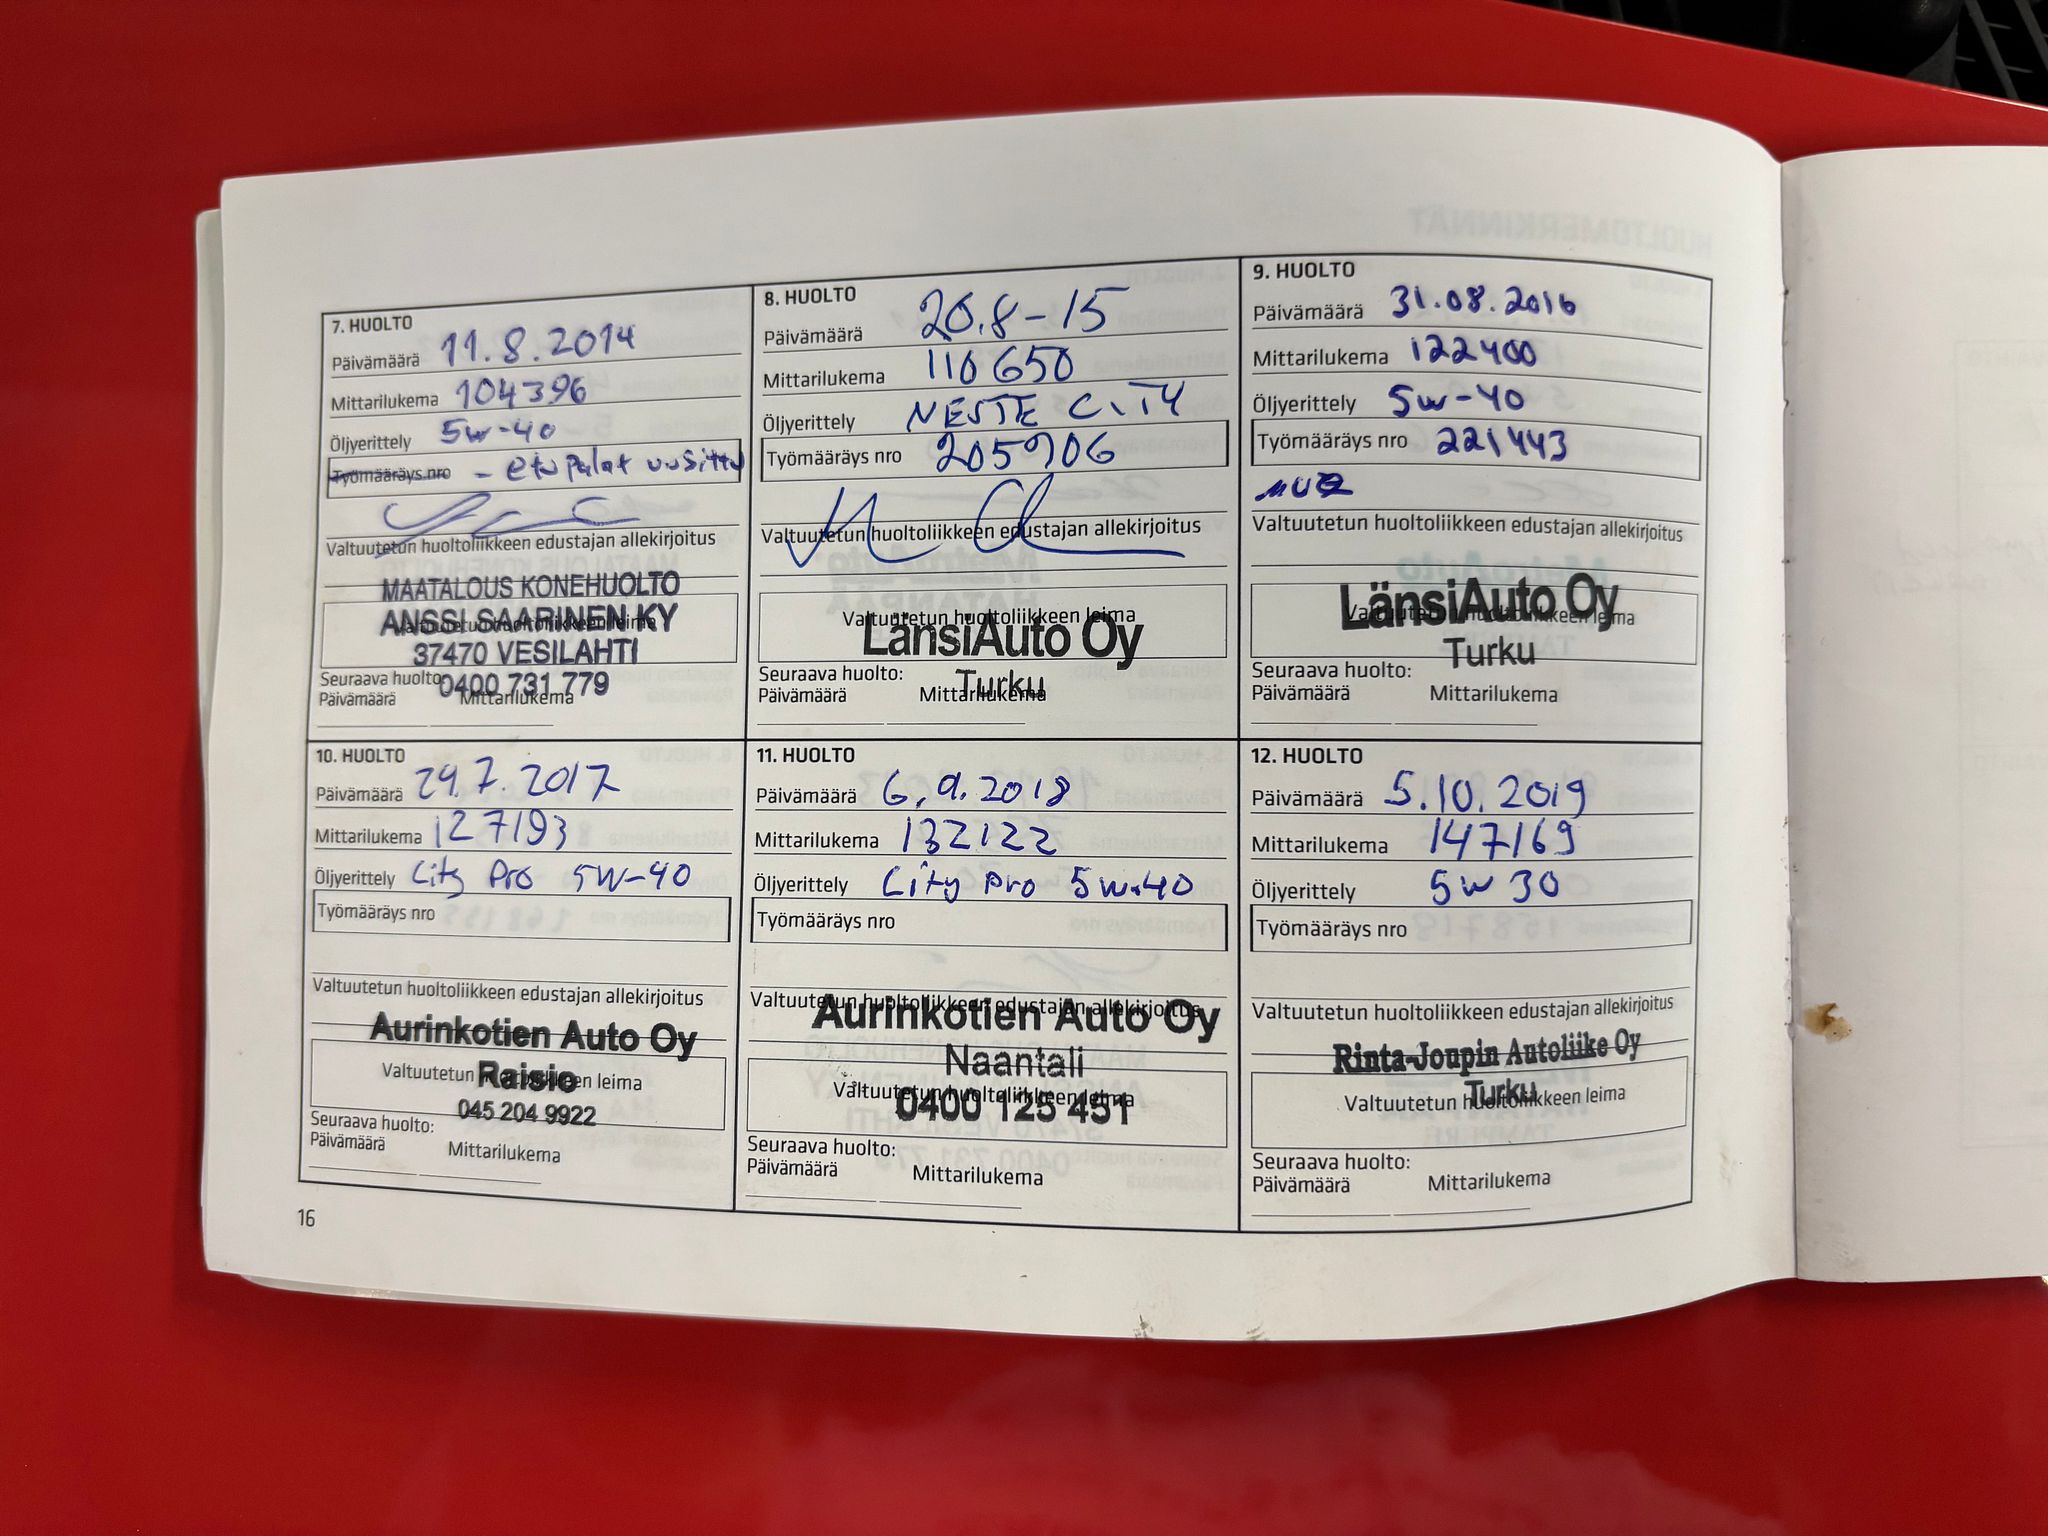 7. HUOLTO
Päivämäärä 11.8.2014
Mittarilukema 104396
Öljyerittely 5w-40
Työmääräys nro - etupalat uusittu
Valtuutetun huoltoliikkeen edustajan allekirjoitus
MAATALOUS KONEHUOLTO
ANSSI SAARINEN KY
Valtuutetun huoltoliikkeen leima
37470 VESILAHTI
Seuraava huolto:
0400 731 779
Päivämäärä Mittarilukema
8. HUOLTO
Päivämäärä 20.8-15
Mittarilukema 110650
Öljyerittely NESTE CITY
Työmääräys nro 205906
Valtuutetun huoltoliikkeen edustajan allekirjoitus
Valtuutetun huoltoliikkeen leima
LänsiAuto Oy
Seuraava huolto:
Turku
Päivämäärä Mittarilukema
9. HUOLTO
Päivämäärä 31.08.2016
Mittarilukema 122400
Öljyerittely 5w-40
Työmääräys nro 221443
Valtuutetun huoltoliikkeen edustajan allekirjoitus
LänsiAuto Oy
Valtuutetun huoltoliikkeen leima
Turku
Seuraava huolto:
Päivämäärä Mittarilukema
10. HUOLTO
Päivämäärä 29.7.2017
Mittarilukema 127193
Öljyerittely City Pro 5W-40
Työmääräys nro
Valtuutetun huoltoliikkeen edustajan allekirjoitus
Aurinkotien Auto Oy
Raisio
Valtuutetun huoltoliikkeen leima
045 204 9922
Seuraava huolto:
Päivämäärä Mittarilukema
11. HUOLTO
Päivämäärä 6.9.2018
Mittarilukema 132122
Öljyerittely City Pro 5w-40
Työmääräys nro
Valtuutetun huoltoliikkeen edustajan allekirjoitus
Aurinkotien Auto Oy
Naantali
Valtuutetun huoltoliikkeen leima
0400 125 451
Seuraava huolto:
Päivämäärä Mittarilukema
12. HUOLTO
Päivämäärä 5.10.2019
Mittarilukema 147169
Öljyerittely 5w 30
Työmääräys nro
Valtuutetun huoltoliikkeen edustajan allekirjoitus
Rinta-Joupin Autoliike Oy
Turku
Valtuutetun huoltoliikkeen leima
Seuraava huolto:
Päivämäärä Mittarilukema
16